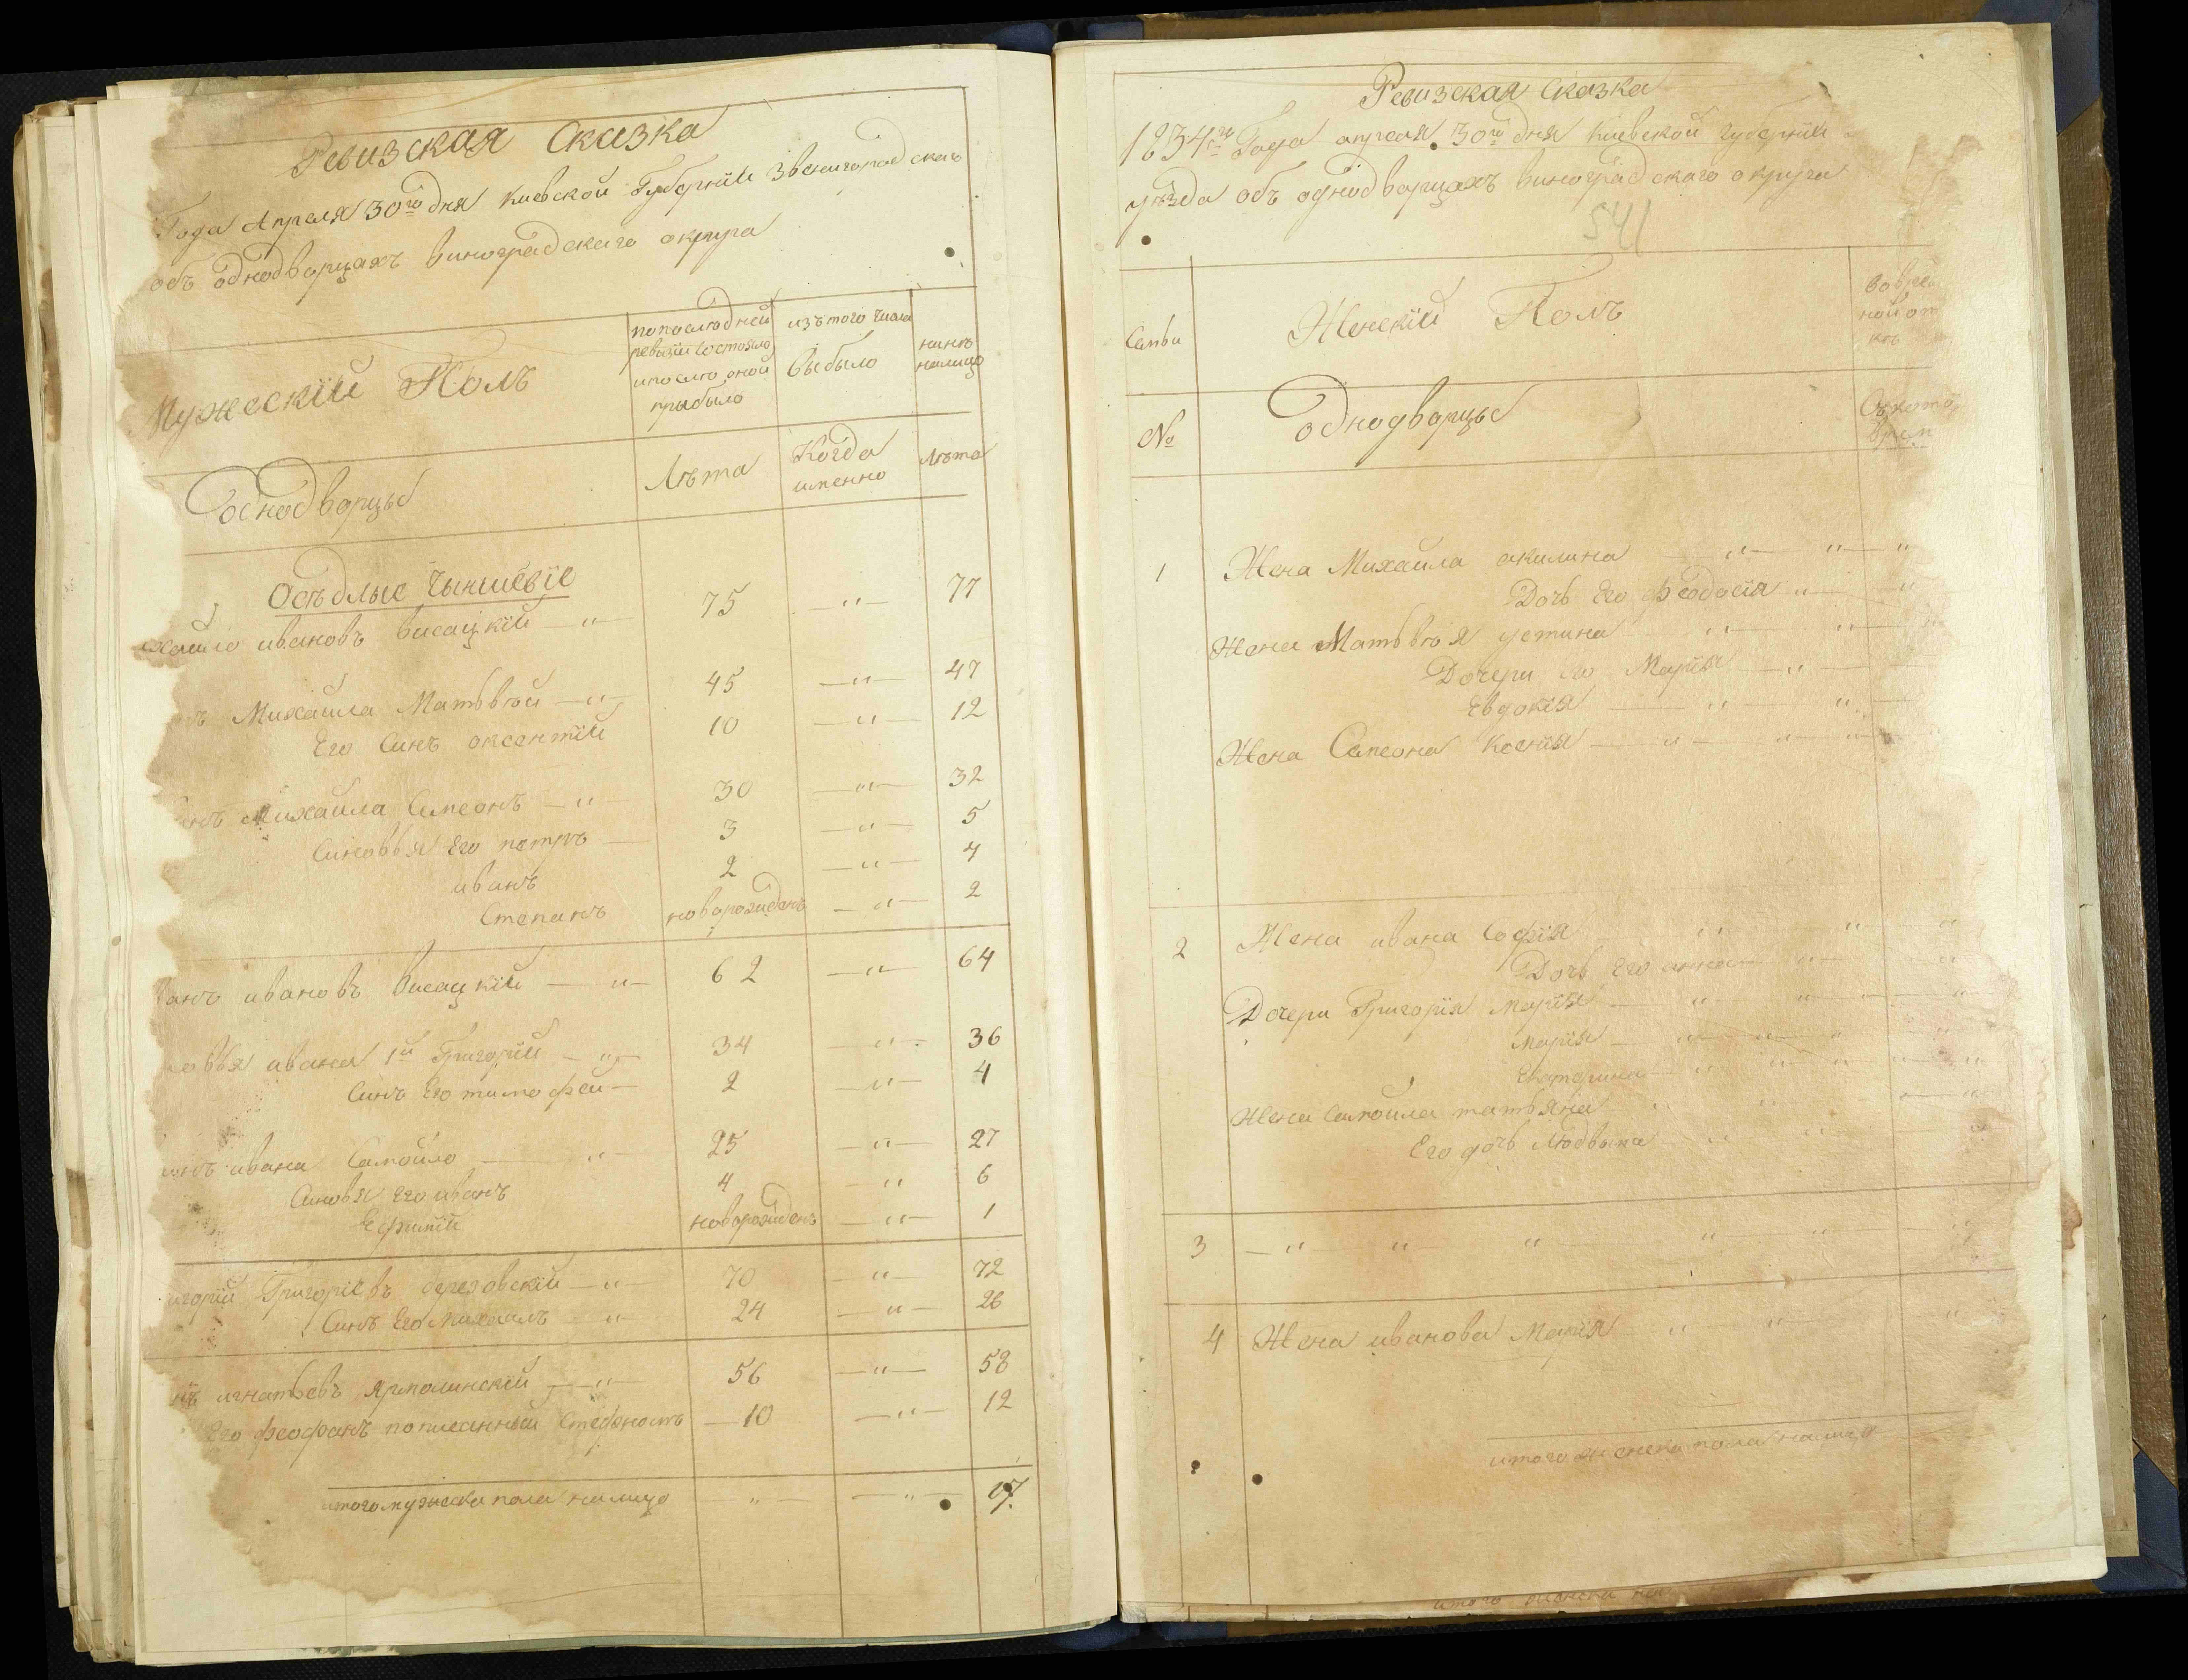 Ревизская Сказка
Года Апреля 30го дня Киевской Губернїи Звенигородскаго
объ однодворцахъ виноградскаго округа
Мужескїй Полъ
попоследней ревизїи состояло ипосле оной прибыло
изътого числа выбыло
нынѣ налицо
однодворцы
Лѣта
Когда именно
Лѣта
Осѣдлые Чыншевїе
хайло ивановъ висацкїй — 〃 — 75 — 〃 — 77
ъ Михайла Матьвѣй — 〃 — 45 — 〃 — 47
Его Синъ оксентїй 10 — 〃 — 12
инъ Михайла Симеонъ — 〃 — 30 — 〃 — 32
Синовья Его петръ — 3 — 〃 — 5
иванъ 2 — 〃 — 4
Степанъ новорожденъ — 〃 — 2
ванъ ивановъ висацкїй — 〃 — 62 — 〃 — 64
новья ивана 1й Григорїй — 〃 — 34 — 〃 — 36
Синъ Его тимофей — 2 — 〃 — 4
инъ ивана Самойло — 〃 — 25 — 〃 — 27
Синовья Его иванъ 4 — 〃 — 6
Ефимїй новорожденъ — 〃 — 1
игорїй Григорїевъ березовскїй — 〃 — 70 — 〃 — 72
Синъ Его Михаилъ 〃 24 — 〃 — 26
нъ игнатьевъ ярмолинскїй — 〃 — 56 — 〃 — 58
Его феофанъ 10 — 〃 — 12
итого мужеска пола налицо — 〃 — — 〃 — 17.
Ревизская Сказка
1834го Года апреля 30го дня Киевской губернїи
уѣзда объ однодворцахъ виноградскаго округа
541
Семьи
Женскїй Полъ
№
однодворцы
1 Жена Михайла акилина — 〃 — 〃 — 〃
Дочь Его феодосїя 〃 — 〃
Жена Матьвѣя устина 〃 — 〃 —
Дочери Его Марїя — 〃 —
Евдокїя — 〃 — 〃 —
Жена Симеона Ксенїя — 〃 — 〃 — 〃
2 Жена ивана Софїя 〃 〃 〃
Дочь Его анна — 〃 — 〃
Дочери Григорїя Марїя — 〃 — 〃 — 〃 — 〃
Марїя — 〃 — 〃 — 〃 〃
Екатерина — 〃 〃 〃 — 〃 — 〃
Жена Самойла татьяна 〃 〃 — 〃
Его дочь Людвыка 〃 〃
3 — 〃 — 〃 — 〃 — 〃 — 〃 〃
4 Жена иванова Марїя 〃 — 〃 — 〃
итого женска пола налицо
итого женска пол